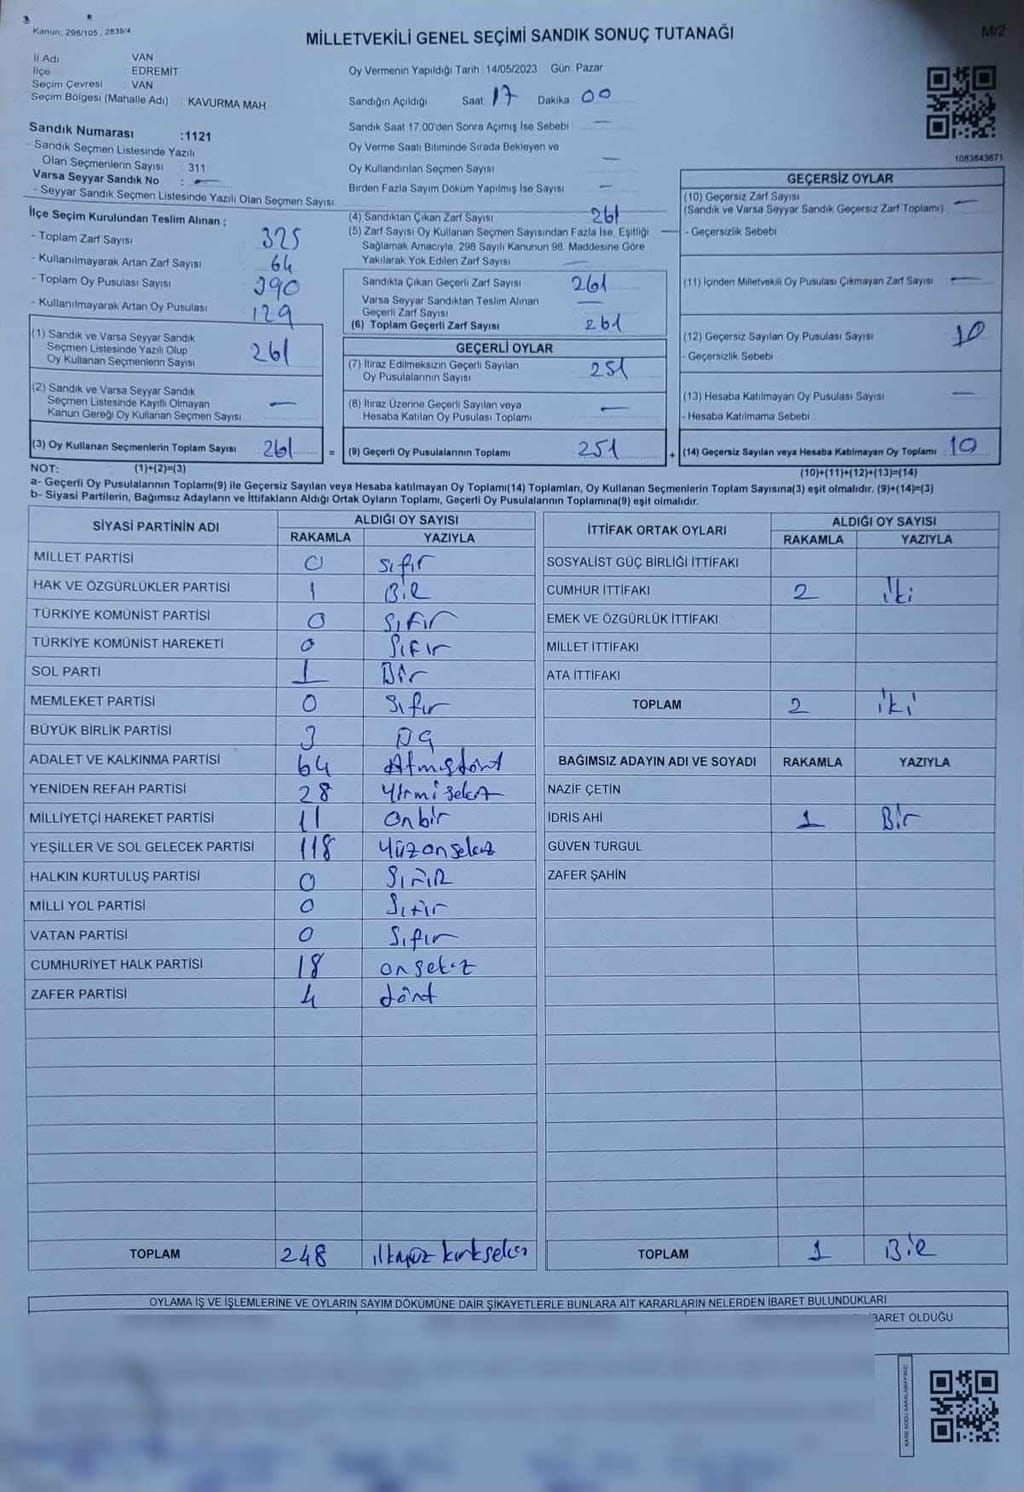 Kanun; 298/105, 2839/4
MİLLETVEKİLİ GENEL SEÇİMİ SANDIK SONUÇ TUTANAĞI
M/2
İl Adı VAN
İlçe EDREMİT
Seçim Çevresi VAN
Seçim Bölgesi (Mahalle Adı) : KAVURMA MAH
Sandık Numarası :1121
- Sandık Seçmen Listesinde Yazılı
Olan Seçmenlerin Sayısı : 311
Varsa Seyyar Sandık No : —
- Seyyar Sandık Seçmen Listesinde Yazılı Olan Seçmen Sayısı
Oy Vermenin Yapıldığı Tarih : 14/05/2023 Gün: Pazar
Sandığın Açıldığı Saat: 17 Dakika 00
Sandık Saat 17:00'den Sonra Açılmış İse Sebebi —
Oy Verme Saati Bitiminde Sırada Bekleyen ve
Oy Kullandırılan Seçmen Sayısı —
Birden Fazla Sayım Döküm Yapılmış İse Sayısı —
1083843671
İlçe Seçim Kurulundan Teslim Alınan ;
- Toplam Zarf Sayısı 325
- Kullanılmayarak Artan Zarf Sayısı 64
- Toplam Oy Pusulası Sayısı 390
- Kullanılmayarak Artan Oy Pusulası 129
(1) Sandık ve Varsa Seyyar Sandık
Seçmen Listesinde Yazılı Olup
Oy Kullanan Seçmenlerin Sayısı 261
(2) Sandık ve Varsa Seyyar Sandık
Seçmen Listesinde Kayıtlı Olmayan
Kanun Gereği Oy Kullanan Seçmen Sayısı —
(3) Oy Kullanan Seçmenlerin Toplam Sayısı 261 =
(4) Sandıktan Çıkan Zarf Sayısı 261
(5) Zarf Sayısı Oy Kullanan Seçmen Sayısından Fazla İse, Eşitliği
Sağlamak Amacıyla, 298 Sayılı Kanunun 98. Maddesine Göre
Yakılarak Yok Edilen Zarf Sayısı —
Sandıkta Çıkan Geçerli Zarf Sayısı 261
Varsa Seyyar Sandıktan Teslim Alınan
Geçerli Zarf Sayısı —
(6) Toplam Geçerli Zarf Sayısı 261
GEÇERLİ OYLAR
(7) İtiraz Edilmeksizin Geçerli Sayılan
Oy Pusulalarının Sayısı 251
(8) İtiraz Üzerine Geçerli Sayılan veya
Hesaba Katılan Oy Pusulası Toplamı —
(9) Geçerli Oy Pusulalarının Toplamı 251 +
GEÇERSİZ OYLAR
(10) Geçersiz Zarf Sayısı
(Sandık ve Varsa Seyyar Sandık Geçersiz Zarf Toplamı) —
- Geçersizlik Sebebi
(11) İçinden Milletvekili Oy Pusulası Çıkmayan Zarf Sayısı —
(12) Geçersiz Sayılan Oy Pusulası Sayısı 10
- Geçersizlik Sebebi
(13) Hesaba Katılmayan Oy Pusulası Sayısı —
- Hesaba Katılmama Sebebi
(14) Geçersiz Sayılan veya Hesaba Katılmayan Oy Toplamı 10
NOT: (1)+(2)=(3)
(10)+(11)+(12)+(13)=(14)
a- Geçerli Oy Pusulalarının Toplamı(9) ile Geçersiz Sayılan veya Hesaba katılmayan Oy Toplamı(14) Toplamları, Oy Kullanan Seçmenlerin Toplam Sayısına(3) eşit olmalıdır. (9)+(14)=(3)
b- Siyasi Partilerin, Bağımsız Adayların ve İttifakların Aldığı Ortak Oyların Toplamı, Geçerli Oy Pusulalarının Toplamına(9) eşit olmalıdır.
SİYASİ PARTİNİN ADI ALDIĞI OY SAYISI
RAKAMLA YAZIYLA
MİLLET PARTİSİ 0 Sıfır
HAK VE ÖZGÜRLÜKLER PARTİSİ 1 Bir
TÜRKİYE KOMÜNİST PARTİSİ 0 Sıfır
TÜRKİYE KOMÜNİST HAREKETİ 0 Sıfır
SOL PARTİ 1 Bir
MEMLEKET PARTİSİ 0 Sıfır
BÜYÜK BİRLİK PARTİSİ 3
ADALET VE KALKINMA PARTİSİ 64 Atmışdört
YENİDEN REFAH PARTİSİ 28 Yirmisekiz
MİLLİYETÇİ HAREKET PARTİSİ 11 Onbir
YEŞİLLER VE SOL GELECEK PARTİSİ 118 Yüzonsekiz
HALKIN KURTULUŞ PARTİSİ 0 Sıfır
MİLLİ YOL PARTİSİ 0 Sıfır
VATAN PARTİSİ 0 Sıfır
CUMHURİYET HALK PARTİSİ 18 onsekiz
ZAFER PARTİSİ 4 dört
TOPLAM 248 ikiyüz kırksekiz
İTTİFAK ORTAK OYLARI ALDIĞI OY SAYISI
RAKAMLA YAZIYLA
SOSYALİST GÜÇ BİRLİĞİ İTTİFAKI
CUMHUR İTTİFAKI 2 iki
EMEK VE ÖZGÜRLÜK İTTİFAKI
MİLLET İTTİFAKI
ATA İTTİFAKI
TOPLAM 2 iki
BAĞIMSIZ ADAYIN ADI VE SOYADI RAKAMLA YAZIYLA
NAZİF ÇETİN
İDRİS AHİ 1 Bir
GÜVEN TURGUL
ZAFER ŞAHİN
TOPLAM 1 Bir
OYLAMA İŞ VE İŞLEMLERİNE VE OYLARIN SAYIM DÖKÜMÜNE DAİR ŞİKAYETLERLE BUNLARA AİT KARARLARIN NELERDEN İBARET BULUNDUKLARI
İBARET OLDUĞU